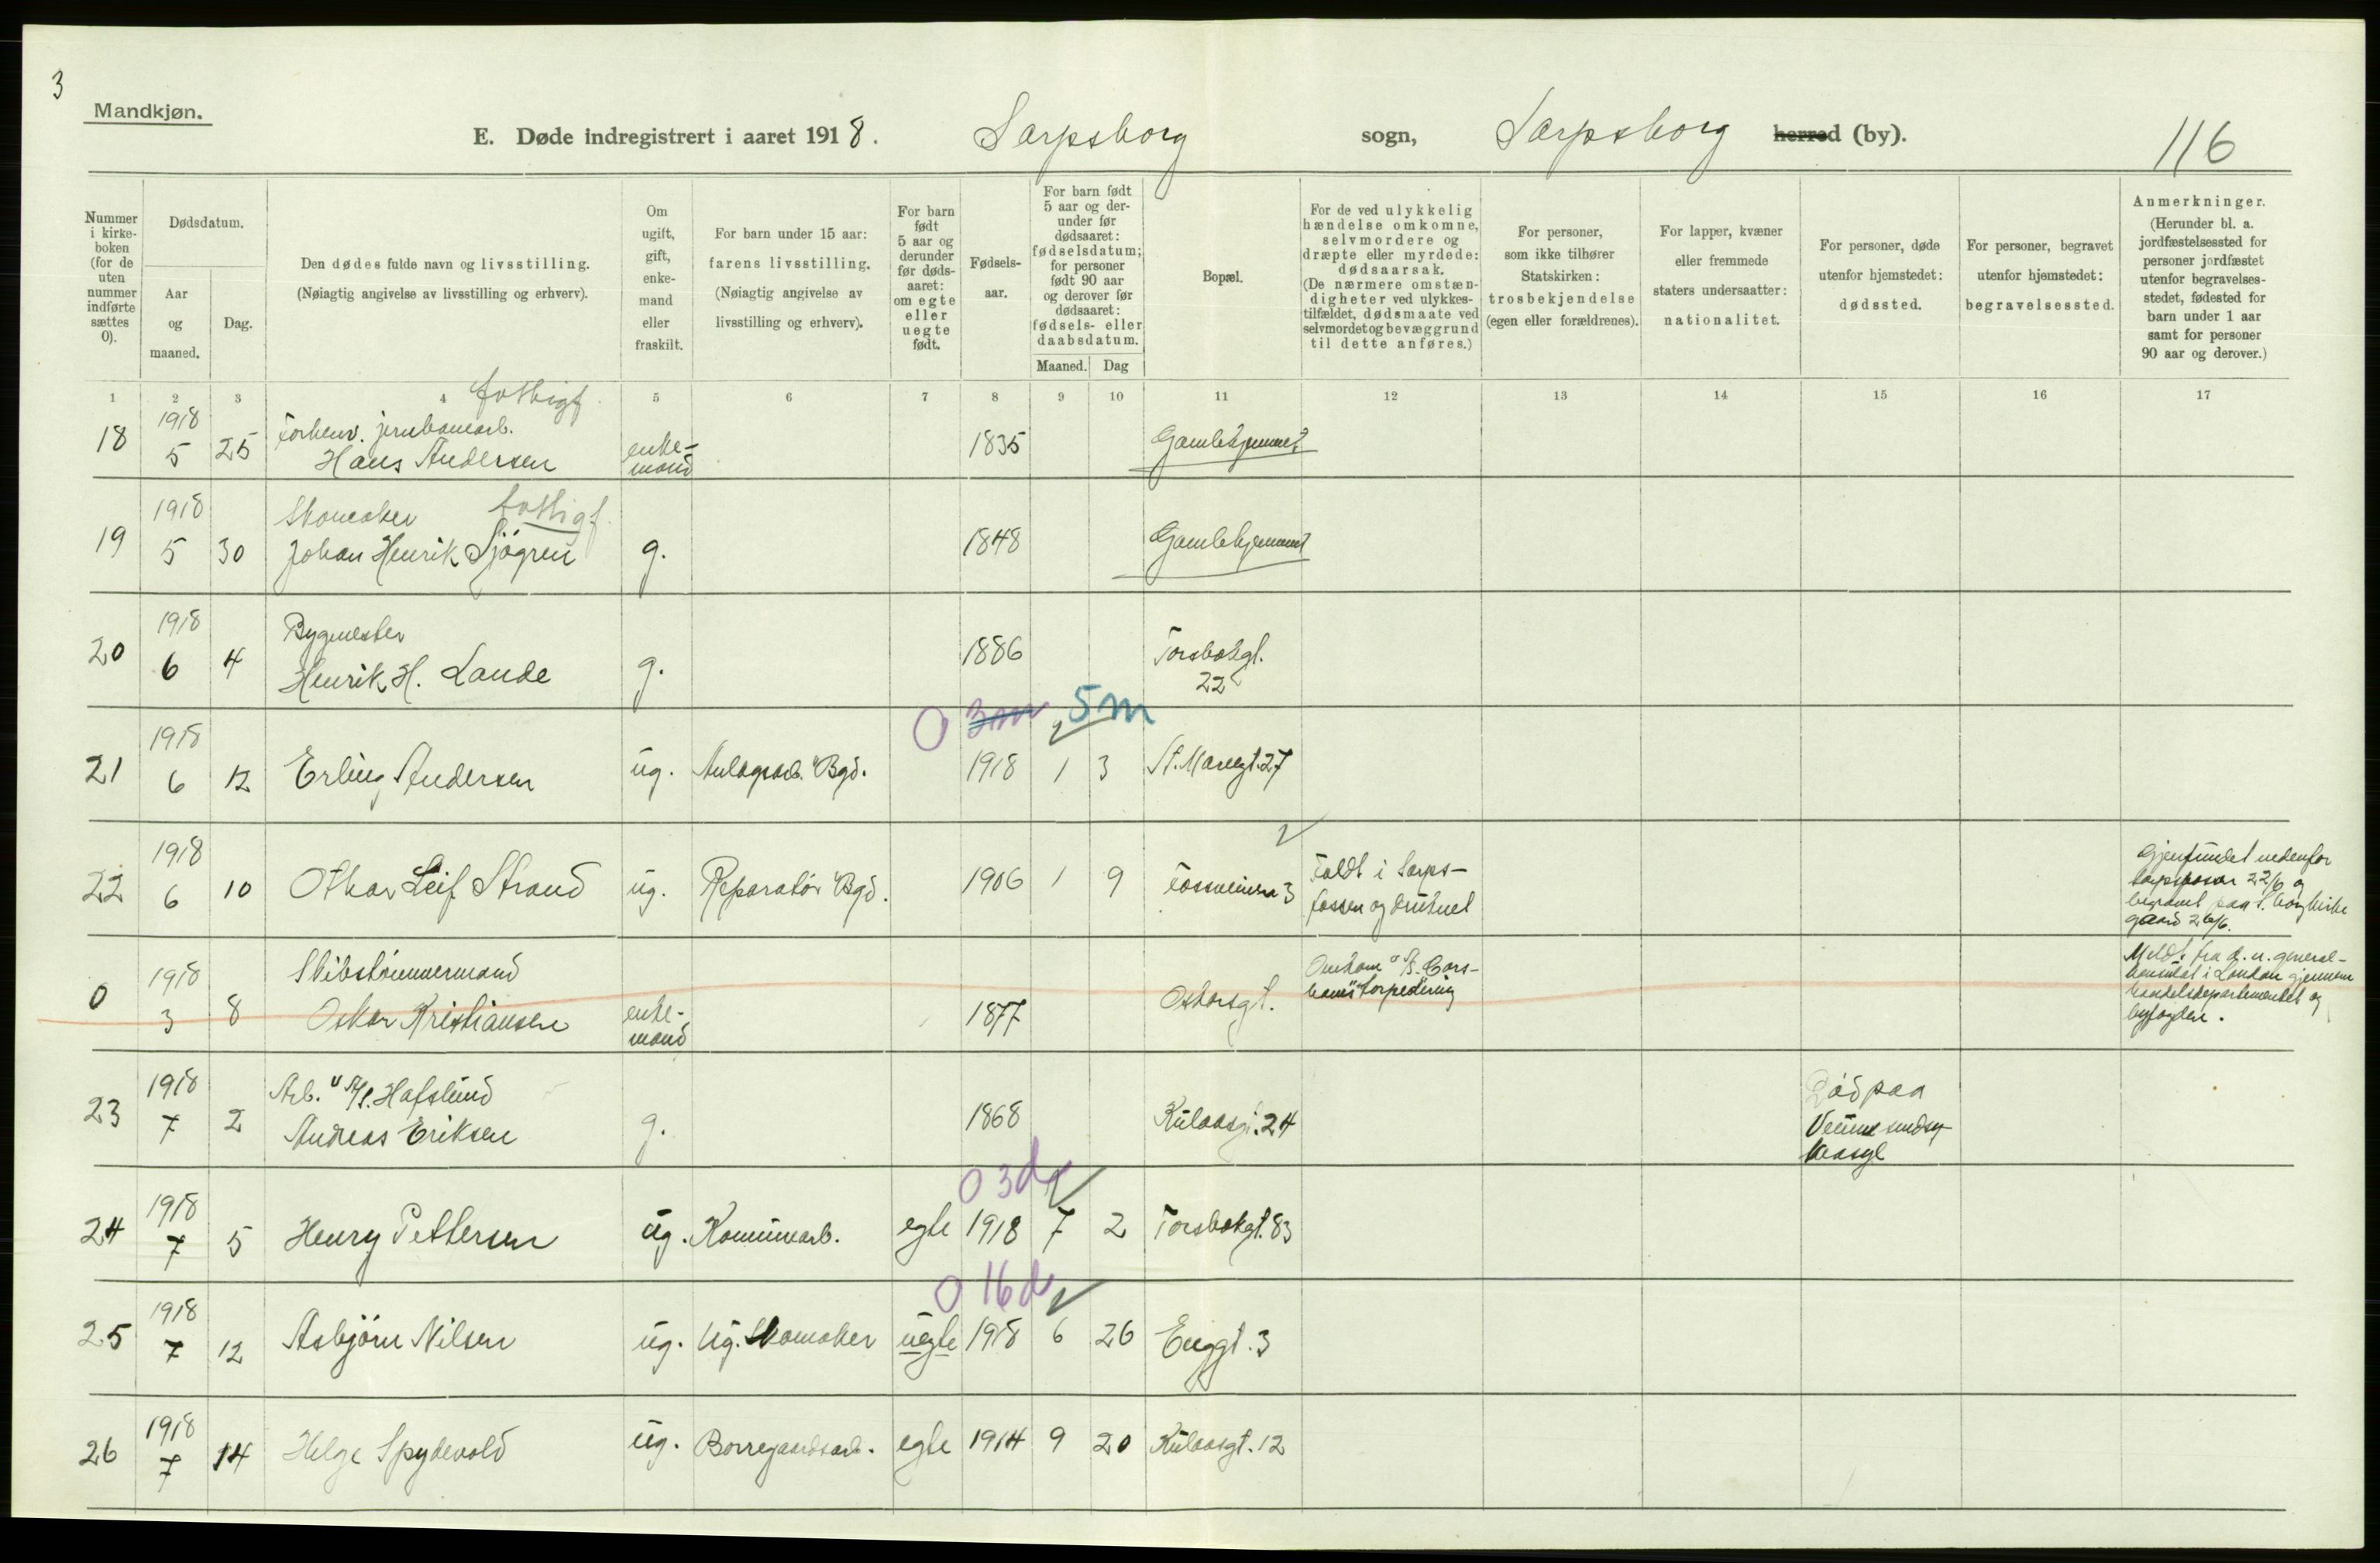 3
Mandkjøn.
E. Døde indregistrert i aaret 1918. Sarpsborg sogn, Sarpsborg herred (by).
116
Nummer i kirke-boken (for de uten nummer indførte sættes 0).
Dødsdatum.
Aar og maaned.
Dag.
Den dødes fulde navn og livsstilling.
(Nøiagtig angivelse av livsstilling og erhverv).
Om ugift, gift, enke-mand eller fraskilt.
For barn under 15 aar: farens livsstilling.
(Nøiagtig angivelse av livsstilling og erhverv).
For barn født 5 aar og derunder før døds-aaret: om egte eller uegte født.
Fødsels-aar.
For barn født 5 aar og der-under før dødsaaret: fødselsdatum; for personer født 90 aar og derover før dødsaaret: fødsels- eller daabsdatum.
Maaned. Dag
Bopæl.
For de ved ulykkelig hændelse omkomne, selvmordere og dræpte eller myrdede: dødsaarsak.
(De nærmere omstæn-digheter ved ulykkes-tilfældet, dødsmaate ved selvmordet og bevæggrund til dette anføres.)
For personer, som ikke tilhører Statskirken: trosbekjendelse (egen eller forældrenes).
For lapper, kvæner eller fremmede staters undersaatter: nationalitet.
For personer, døde utenfor hjemstedet: dødssted.
For personer, begravet utenfor hjemstedet: begravelsessted.
Anmerkninger.
(Herunder bl. a. jordfæstelsessted for personer jordfæstet utenfor begravelses-stedet, fødested for barn under 1 aar samt for personer 90 aar og derover.)
1 2 3 4 5 6 7 8 9 10 11 12 13 14 15 16 17
fattigf.
18 1918 5 25 Forhenv. jernbanearb. Hans Andersen enke-mand 1835 Gamlehjemmet
fattigf.
19 1918 5 30 Skomaker Johan Henrik Sjögren g. 1848 Gamlehjemmet
20 1918 6 4 Bygmester Henrik H. Lande g. 1886 Torsbekgt. 22
0 3m 5m
21 1918 6 12 Erling Andersen ug. Anlagsarb. Bgd. 1918 1 3 St. Mariegt. 27
22 1918 6 10 Othar Leif Strand ug. Reparatör Bgd. 1906 1 9 3 Faldt i Sarps-fossen og druknet Gjenfundet nedenfor Sarpsfossen 22/6 og begravet paa S.borg kirkegaard 26/6.
0 1918 3 8 Skibstömmermand Oskar Kristiansen enke-mand 1877 Oskarsgt. Omkom torpedering Meldt fra d. n. general-konsulat i London gjennem handelsdepartementet og byfogden.
23 1918 7 2 Arb. A/S. Hafslund Andreas Eriksen g. 1868 Kulaasgt. 24 Död paa
0 3d
24 1918 7 5 Henry Pettersen ug. Kommunearb. egte 1918 7 2 Torsbekgt. 83
0 16d
25 1918 7 12 Asbjörn Nilsen ug. Ug. Skomaker uegte 1918 6 26 Enggt. 3
26 1918 7 14 Helge Spydevold ug. Borregaardsarb. egte 1914 9 20 Kulaasgt. 12